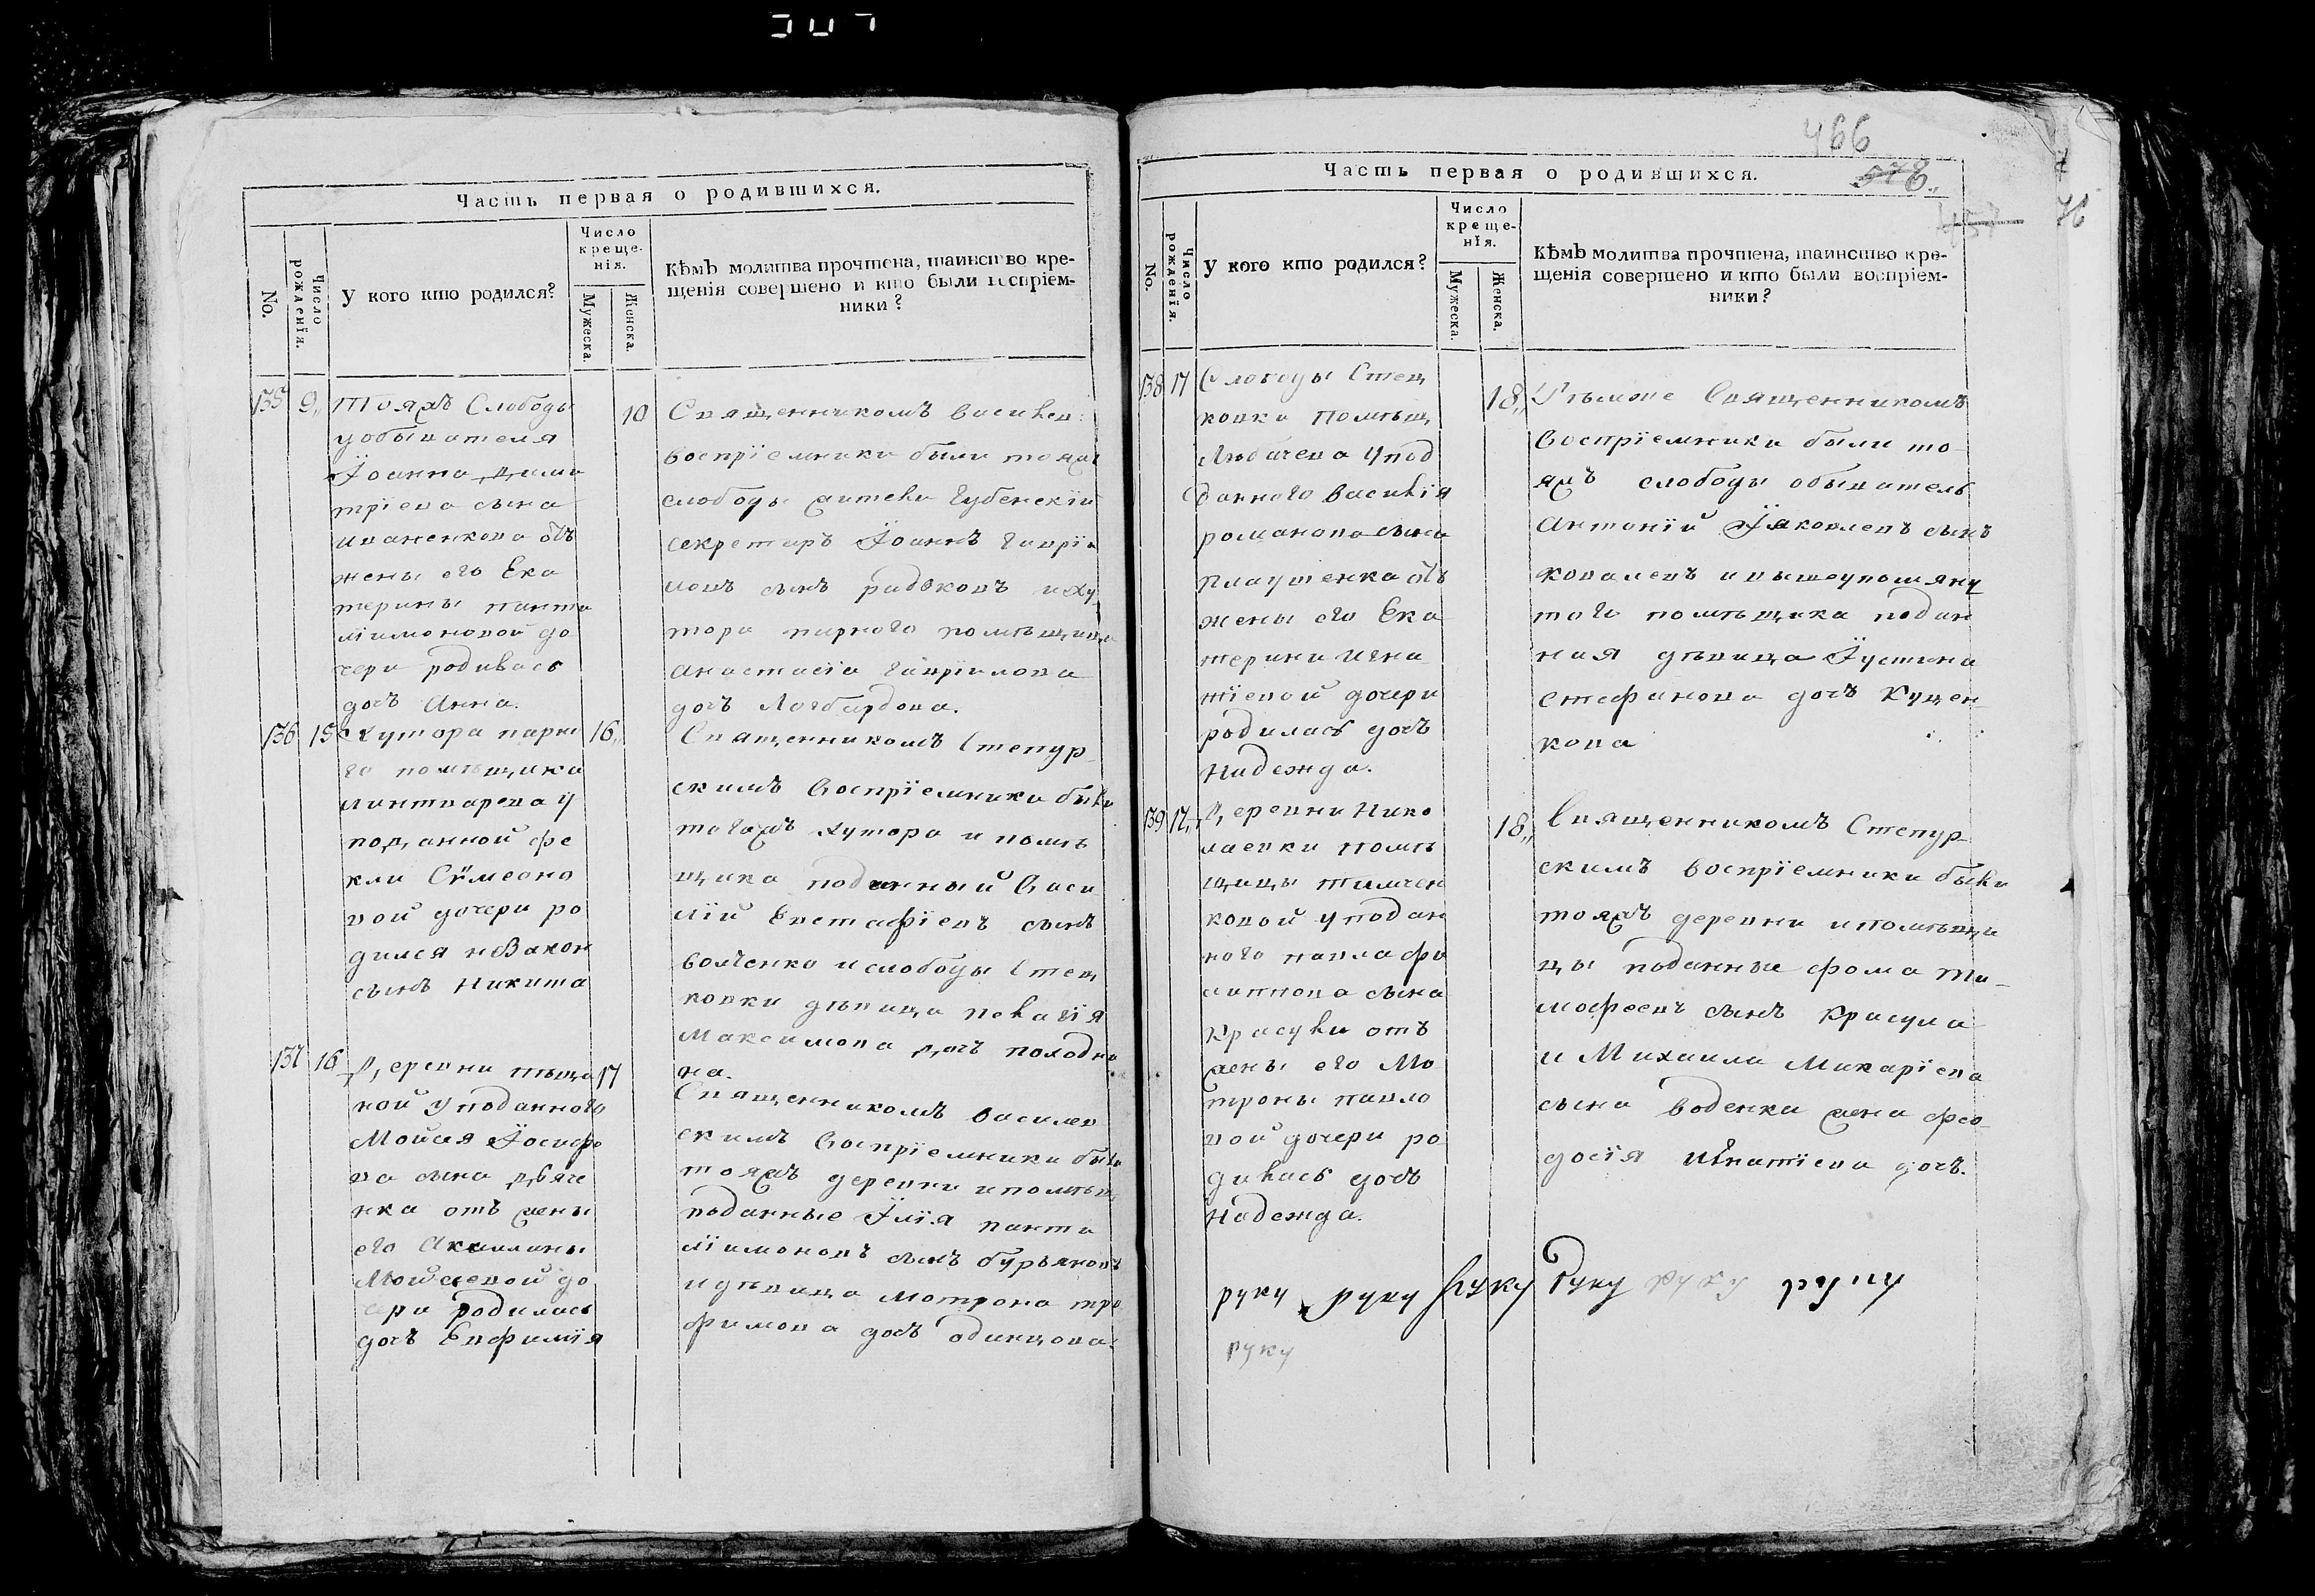 Часть первая о родившихся.
No.
Число рожденїя.
У кого кто родился?
Число
креще-
нїя.
Мужеска.
Женска.
Кѣмъ молитва прочтена, таинство кре-
щенія совершено и кто были воспріем-
ники?
135 9,,
Тояжъ Слободы
уобывателя
Іоанна Дими
трїева сына
Иваненкова отъ
жены его Ека
терины панте
лїимоновой до
чери родилась
дочь Анна.
10
Священникомъ василев:
воспрїемники были тояжъ
слободы жители Губенскїй
секретарь Іоаннъ Гаврїи
ловъ сынъ радковъ иху
тора парного помѣщица
анастасїа Гаврїилова
дочь
136 15
Хутора парно
го помѣщика
линтварева у
подданной фе
кли Сѵмеоно
вой дочери ро
дился незакон
сынъ Никита
16,,
Священникомъ Степур
скимъ воспрїемники были
тогожъ Хутора и помѣ
щика поданный васи
лїй Евстафїевъ сынъ
волченко и слободы Стец
ковки дѣвица Пелагїя
Максимова дочь полодна
на.
137 16
Деревни тѣща
ной у поданного
Мойсея Іосифо
ва сына дбяче
нка отъ жены
его Акилины
Мойсеевой до
чери родилась
дочь Евфимїя
17
Священникомъ василев
скимъ воспрїемники были
тояжъ деревни и помѣщ
поданные Илїя панте
лїимоновъ сынъ бурьяновъ
и дѣвица Мотрона тро
фимова дочь одинцова.
466
578,,
76
Часть первая о родившихся.
No.
Число рожденїя.
У кого кто родился?
Число
креще-
нїя.
Мужеска.
Женска.
Кѣмъ молитва прочтена, таинство кре-
щенія совершено и кто были воспріем-
ники?
138 17
Слободы Стец
ковки Помѣщ
Любачева упод
данного василїя
романова сына
плаушенка отъ
жены его Ека
терини Игна
тїевой дочери
родилась дочь
Надежда.
18,,
Тѣмже Священникомъ
воспрїемники были то
яжъ слободы обыватель
антонїй Іаковлевъ сынъ
ковалевъ и вышеупомяну
того помѣщика подан
ная дѣвица Іустина
стефанова дочь Куцен
кова
139 17,,
Деревни Нико
лаевки помѣ
щицы тимчен
ковой у подан
ного павла фи
липпова сына
Красули отъ
жены его Мо
троны павло
вой дочери ро
дилась дочь
Надежда.
18,,
Священникомъ Степур
скимъ воспрїемники были
тояжъ деревни и помѣщи
цы поданные фома ти
мофеевъ сынъ Красула
и Михаила Макарїева
сына воденка жена фео
досїя Игнатїева дочь.
руку руку руку руку руку руку
руку